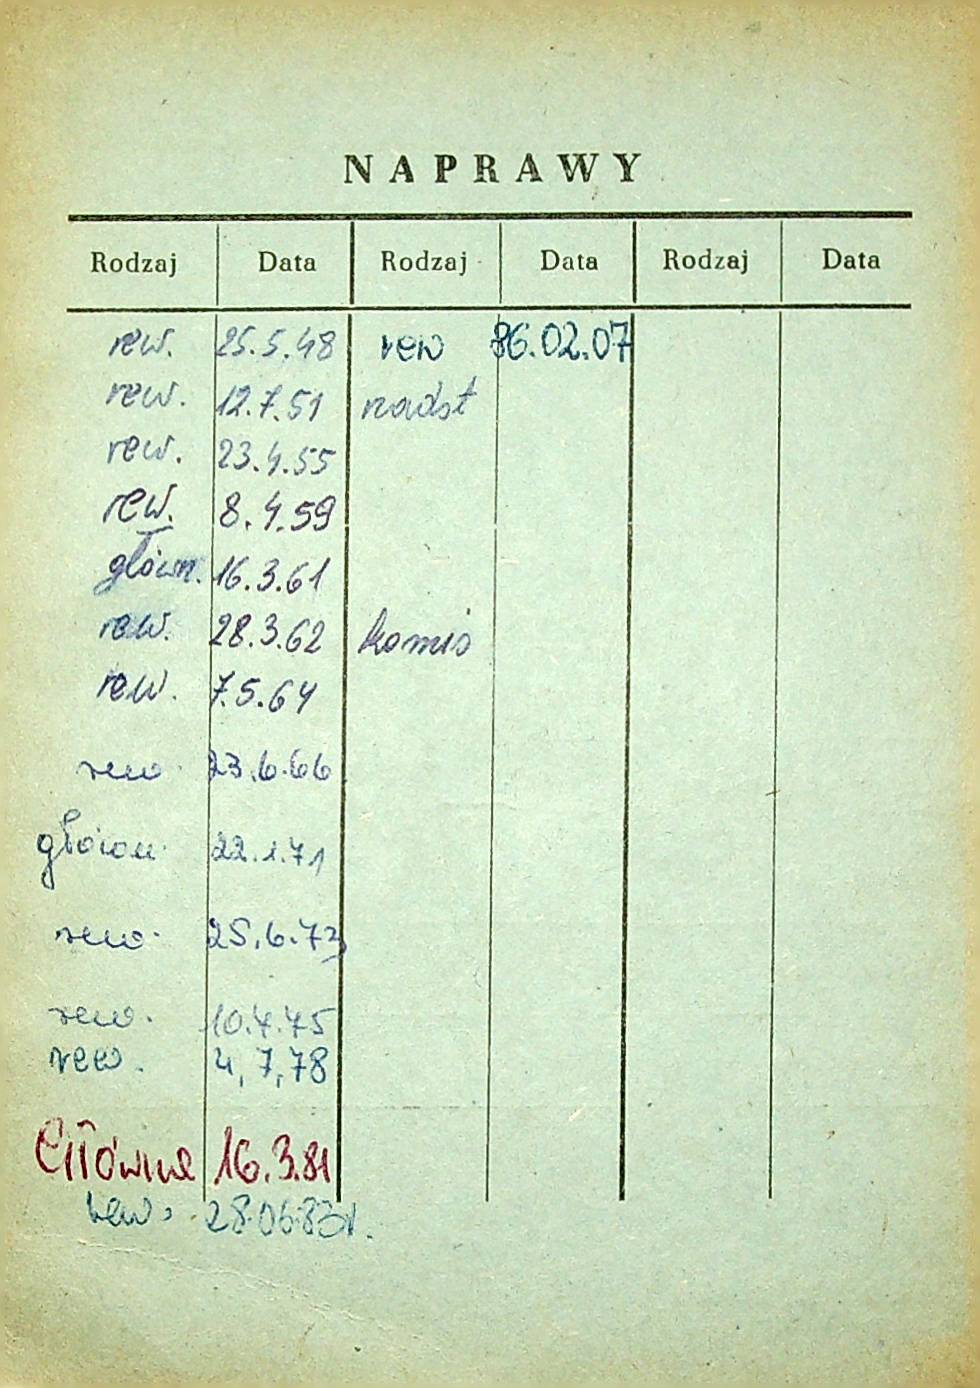 NAPRAWY
Rodzaj Data Rodzaj Data Rodzaj Data
rew. 25.5.48 rew 86.02.07
rew. 12.7.51
rew. 23.4.55
rew. 8.4.59
główn. 16.3.61
rew. 28.3.62
rew. 7.5.64
rew. 23.6.66
główn. 22.1.71
rew. 25.6.73
rew. 10.4.75
rew. 4,7,78
Główna 16.3.81
rew. 28.06.83r.